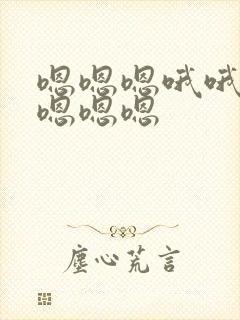 嗯嗯嗯哦哦
嗯嗯嗯
塵心荒言